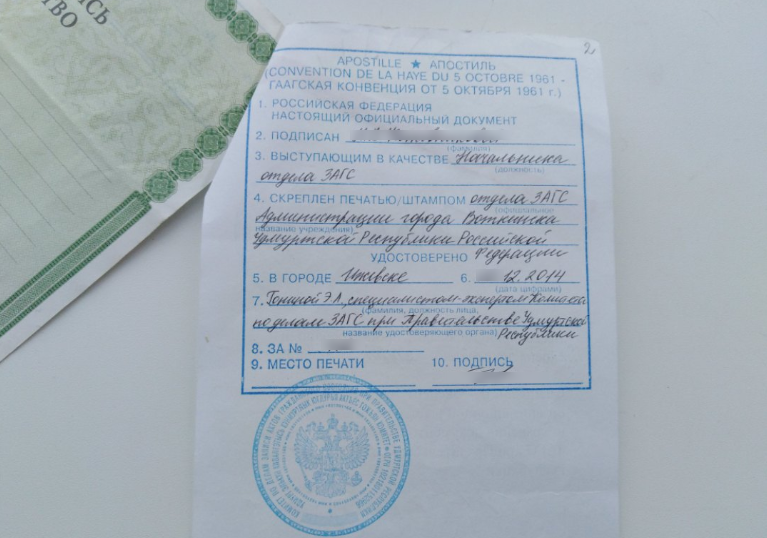 ИСЬ
ТВО
2
APOSTILLE ★ АПОСТИЛЬ
(CONVENTION DE LA HAYE DU 5 OCTOBRE 1961 -
ГААГСКАЯ КОНВЕНЦИЯ ОТ 5 ОКТЯБРЯ 1961 г.)
1. РОССИЙСКАЯ ФЕДЕРАЦИЯ
НАСТОЯЩИЙ ОФИЦИАЛЬНЫЙ ДОКУМЕНТ
2. ПОДПИСАН
(фамилия)
3. ВЫСТУПАЮЩИМ В КАЧЕСТВЕ Начальника
(должность)
отдела ЗАГС
4. СКРЕПЛЕН ПЕЧАТЬЮ/ШТАМПОМ отдела ЗАГС
(официальное
Администрации города Воткинска
название учреждения)
Удмуртской Республики Российской
УДОСТОВЕРЕНО Федерации
5. В ГОРОДЕ Ижевске 6. 12.2014
(дата цифрами)
7. специалистом-экспертом
(фамилия, должность лица,
по делам ЗАГС при Правительстве Удмуртской
название удостоверяющего органа) Республики
8. ЗА №
9. МЕСТО ПЕЧАТИ 10. ПОДПИСЬ